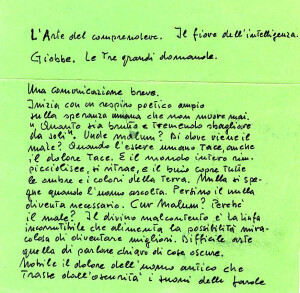 L'Arte del comprendere. Il fiore dell'intelligenza.
Giobbe. Le Tre grandi domande.
Una comunicazione breve.
Inizia con un respiro poetico ampio
sulla speranza umana che non muore mai.
"Quanto sia brutto e tremendo sbagliare
da soli". Unde malum? Di dove viene il
male? Quando l'essere umano tace, anche
il dolore tace. E il mondo intero rim-
picciolisce, si ritrae, e il buio copre tutte
le ombre e i colori della Terra. Nulla si spe-
gne quando l'uomo ascolta. Perfino il nulla
diventa necessario. Cur Malum? Perché
il male? Il divino malcontento è la linfa
incorruttibile che alimenta la possibilità mira-
colosa di diventare migliori. Difficile arte
quella di parlare chiaro di cose oscure.
Nobile il dolore dell'uomo antico che
trasse dall'oscurità i suoni delle parole